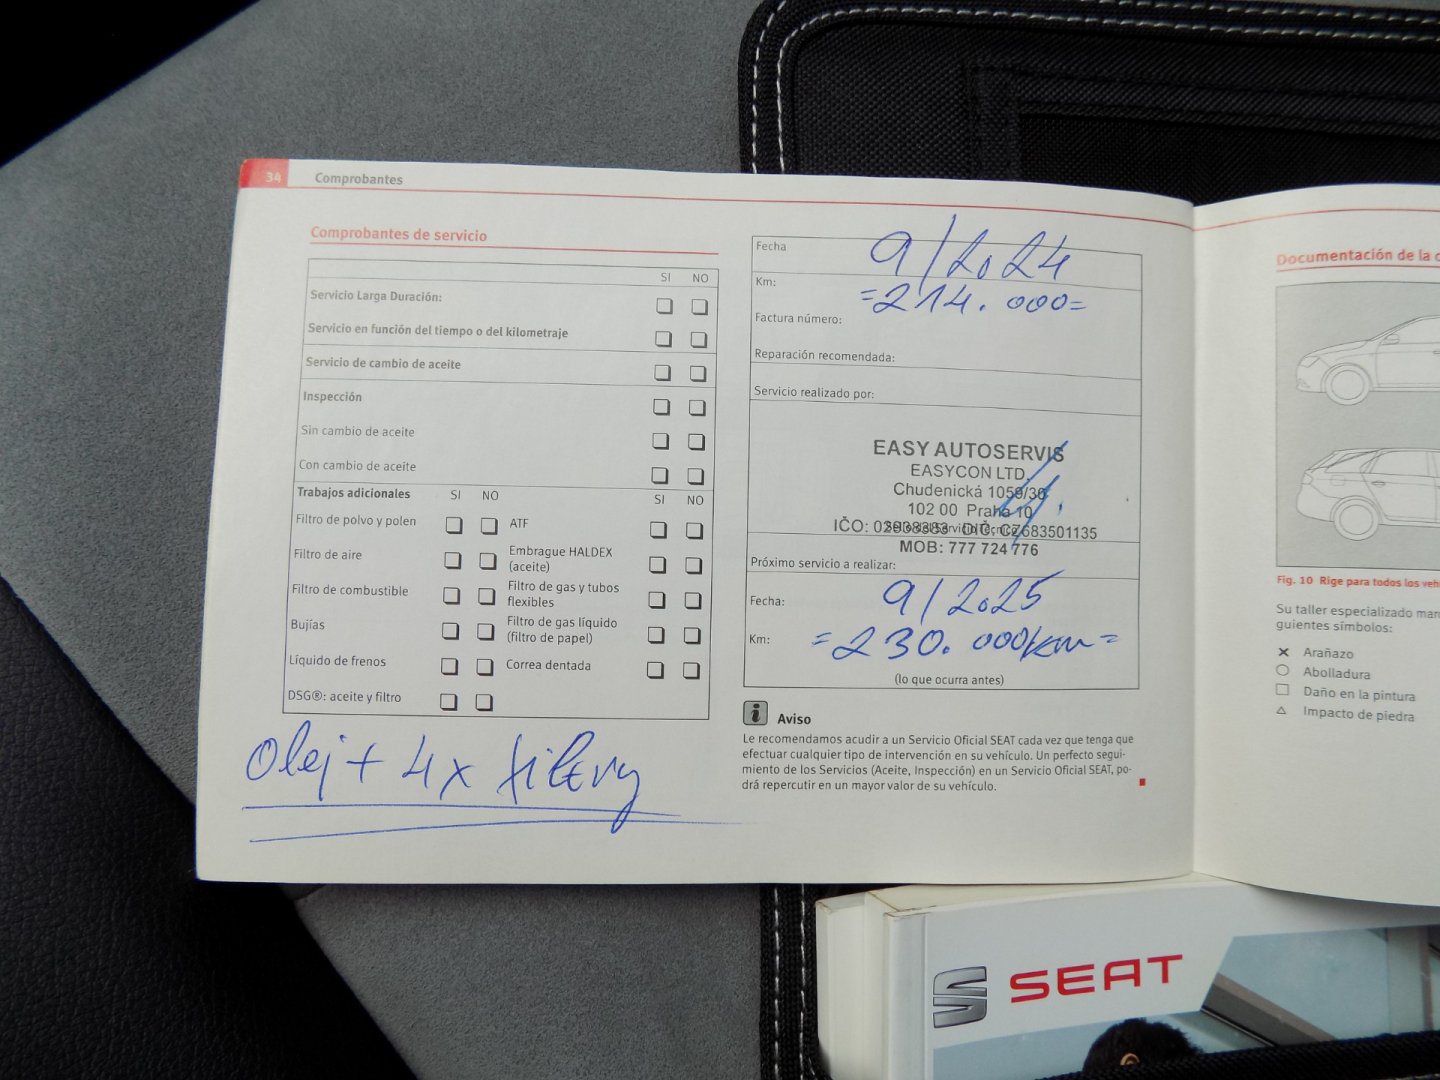 34 Comprobantes
Comprobantes de servicio
SI NO
Servicio Larga Duración:
Servicio en función del tiempo o del kilometraje
Servicio de cambio de aceite
Inspección
Sin cambio de aceite
Con cambio de aceite
Trabajos adicionales SI NO SI NO
Filtro de polvo y polen ATF
Filtro de aire Embrague HALDEX
(aceite)
Filtro de combustible Filtro de gas y tubos
flexibles
Bujías Filtro de gas líquido
(filtro de papel)
Líquido de frenos Correa dentada
DSG®: aceite y filtro
Olej + 4x filtry
Fecha 9/2024
Km: =214.000=
Factura número:
Reparación recomendada:
Servicio realizado por:
EASY AUTOSERVIS
EASYCON LTD.
Chudenická 1059/30
102 00 Praha 10
IČO: 02908383 DIČ: CZ683501135
MOB: 777 724 776
Próximo servicio a realizar:
Fecha: 9/2025
Km: =230.000km=
(lo que ocurra antes)
Aviso
Le recomendamos acudir a un Servicio Oficial SEAT cada vez que tenga que
efectuar cualquier tipo de intervención en su vehículo. Un perfecto segui-
miento de los Servicios (Aceite, Inspección) en un Servicio Oficial SEAT, po-
drá repercutir en un mayor valor de su vehículo.
Documentación de la
Fig. 10 Rige para todos los
Su taller especializado
guientes símbolos:
Arañazo
Abolladura
Daño en la pintura
Impacto de piedra
SEAT